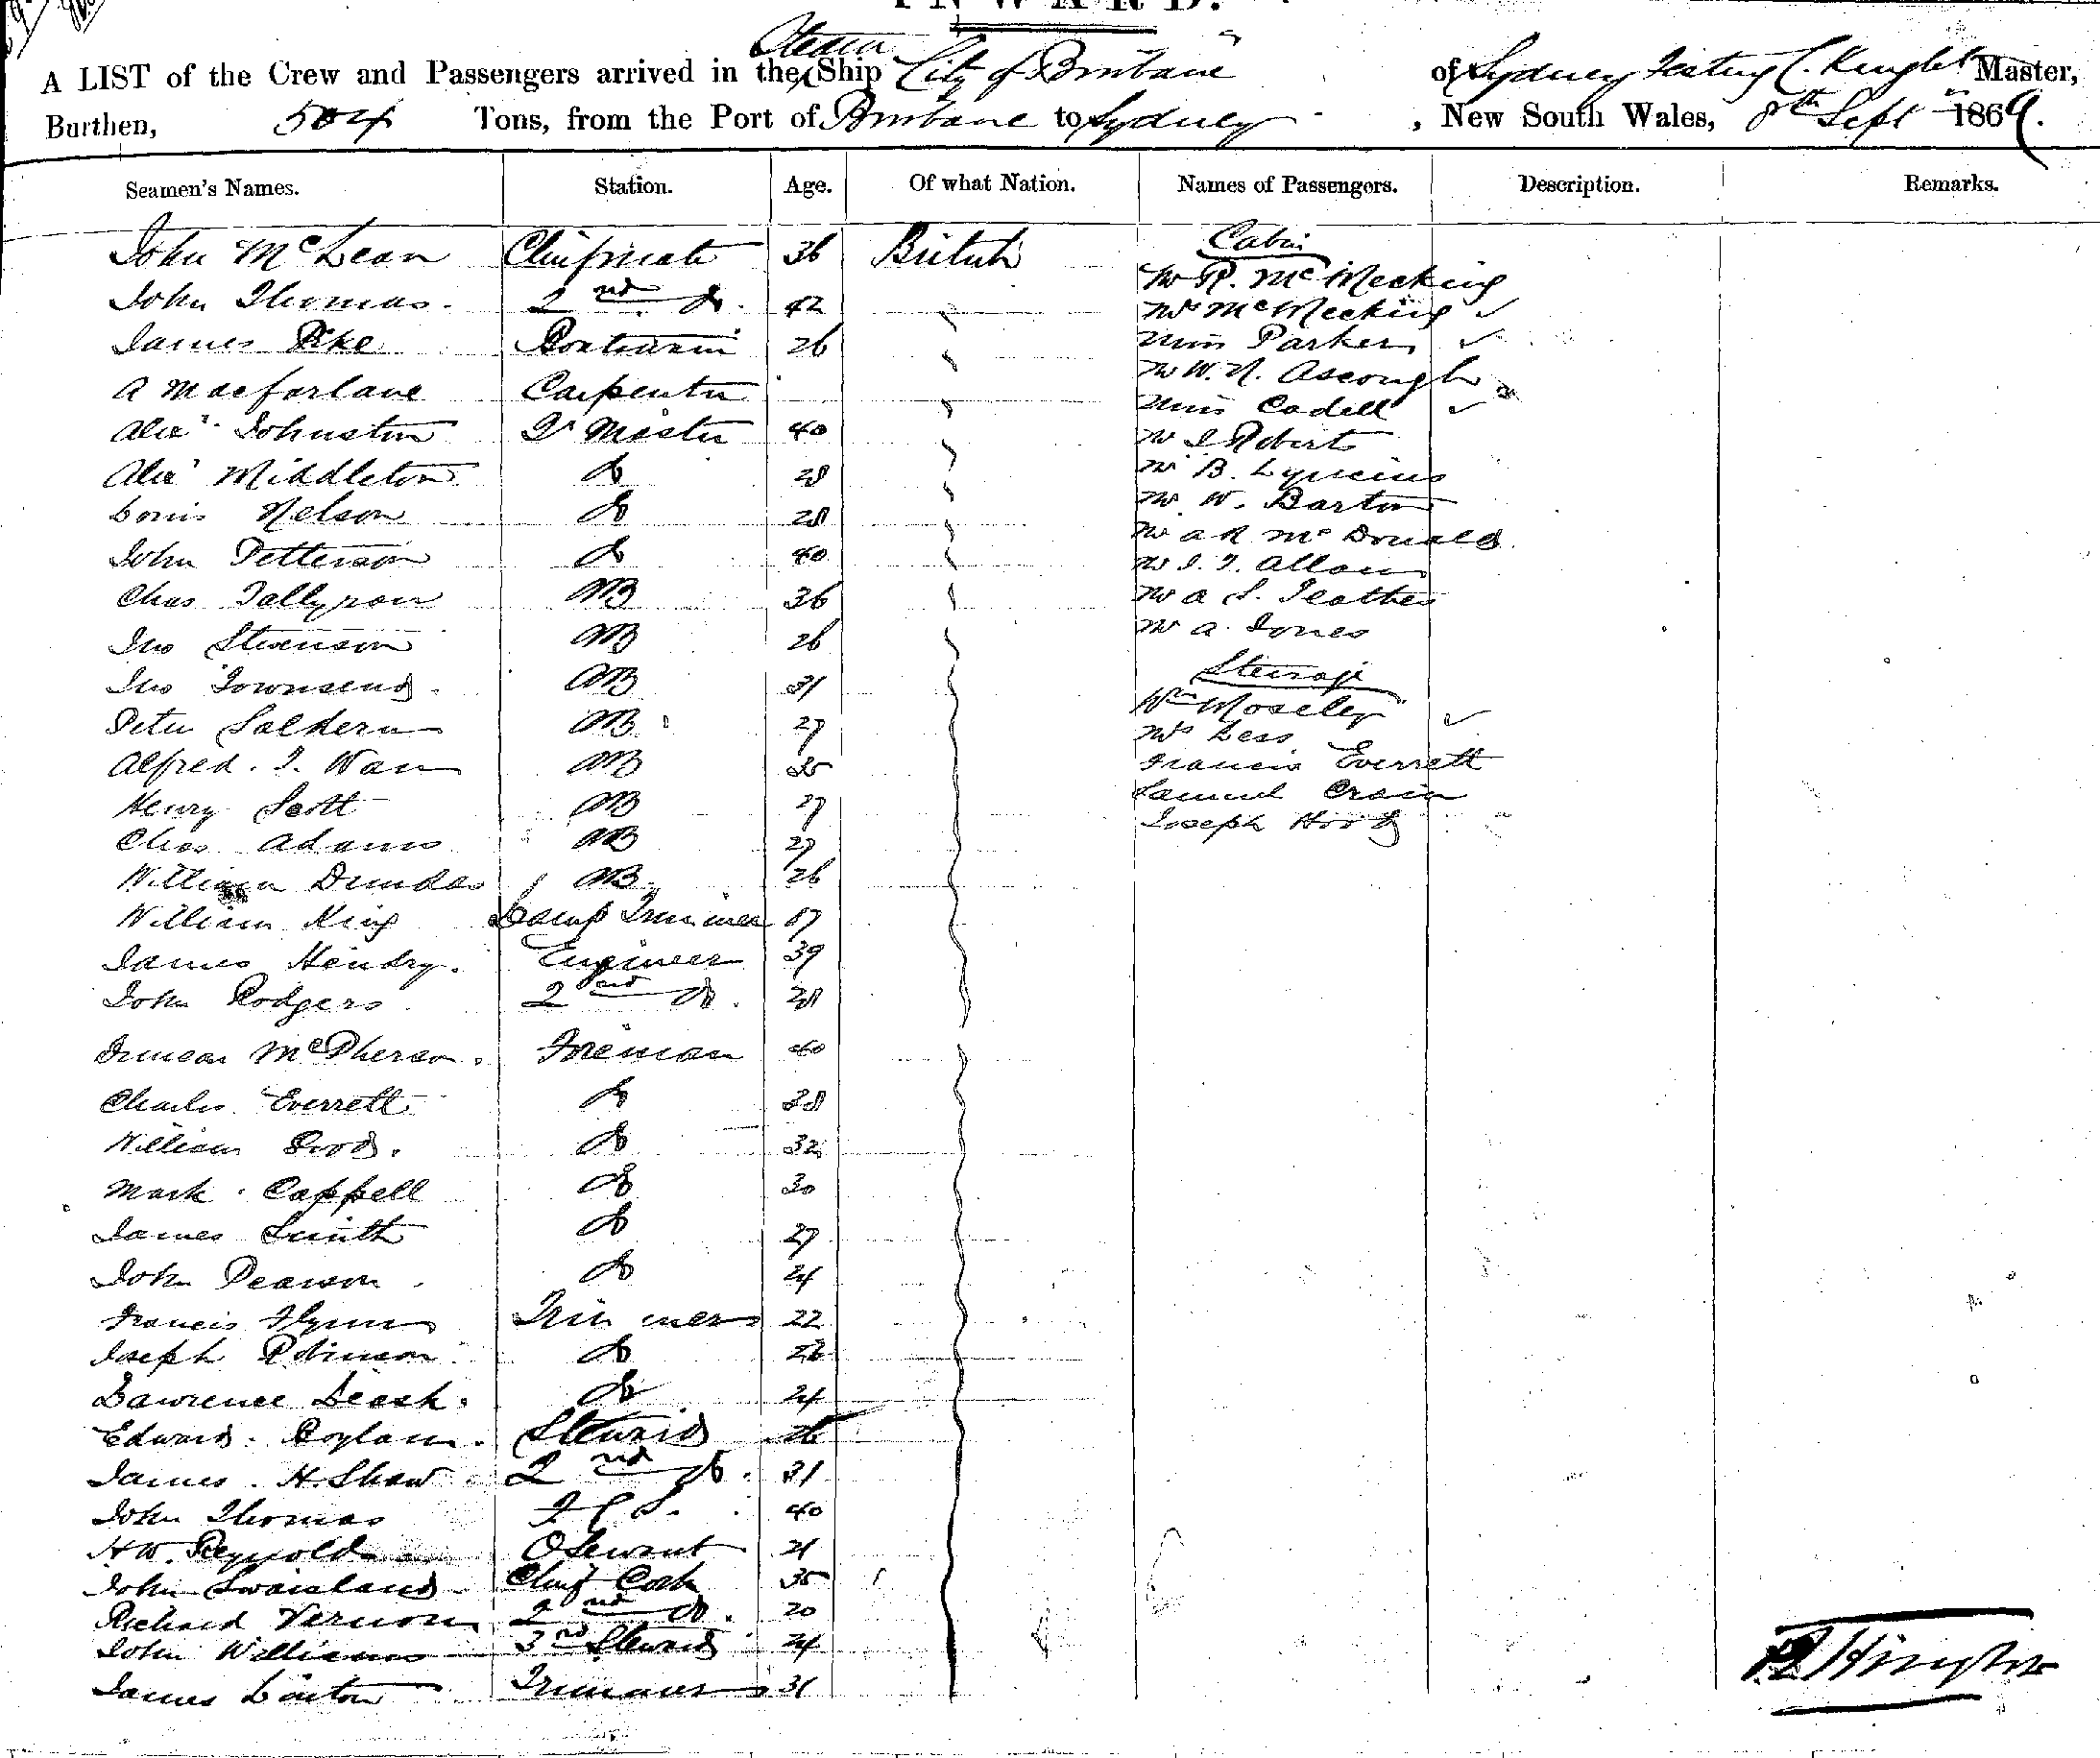 INWARD.
Steam
A LIST of the Crew and Passengers arrived in the Ship City of Brisbane of Sydney C. Knight Master,
Burthen, 504 Tons, from the Port of Brisbane to Sydney, New South Wales, 8th Sept 1869.
Seamen's Names. Station. Age. Of what Nation. Names of Passengers. Description. Remarks.
Cabin
John McLean Chief mate 36 British Mr R. McMecking
John Thomas. 2nd do. 42 Mrs McMecking ✓
James Pike Boatswain 26 Miss Parker ✓
A Macfarlane Carpenter Mr W. N. Ascough
Miss Cadell ✓
Alexr Johnston Qr Master 40 Mr J Roberts
Alexr Middleton do 28 Mr B.
Mr W. Barton
Louis Nelson do 28 Mr A R McDonald
John Petterson do 40 Mr J. T. Allan
Chas Tallyron AB 36 Mr A S. Teather
Jno Stevenson AB 26 Mr A. Jones
Steerage
Jno Townsend. AB 31 Wm Moseley ✓
Peter Saldern AB 27 Mrs Less
Alfred. J. Warr AB 25 Francis Everrett
Henry Scott AB 27 Samuel Crain
Chas Adams AB 27 Joseph Hood
William Dundas AB 26
William King Lamp Trimmer 17
James Hendry. Engineer 39
John Rodgers 2nd do. 28
Duncan McPherson. Fireman 40
Charles Everrett do 38
William do 32
Mark Cappell do 30
James Smith do 27
John Pearson do 24
Francis Flynn Trimmers 22
Joseph Robinson do 26
Lawrence Leech. do 24
Edward. Boylan. Steward 26
James. H. Shaw 2nd do. 31
John Thomas F C S. 40
H W. Reynolds O Servant 21
John Swaisland Chief Cook 35
Richard Vernon 2nd do. 20
John Williams 3rd Steward 24
James Linton Trimmer 31